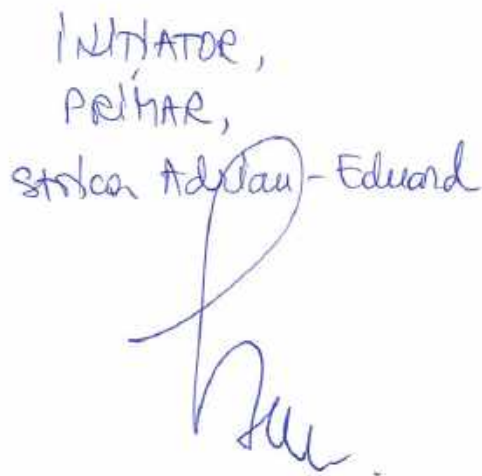 INIȚIATOR,
PRIMAR,
Stoica Adrian-Eduard